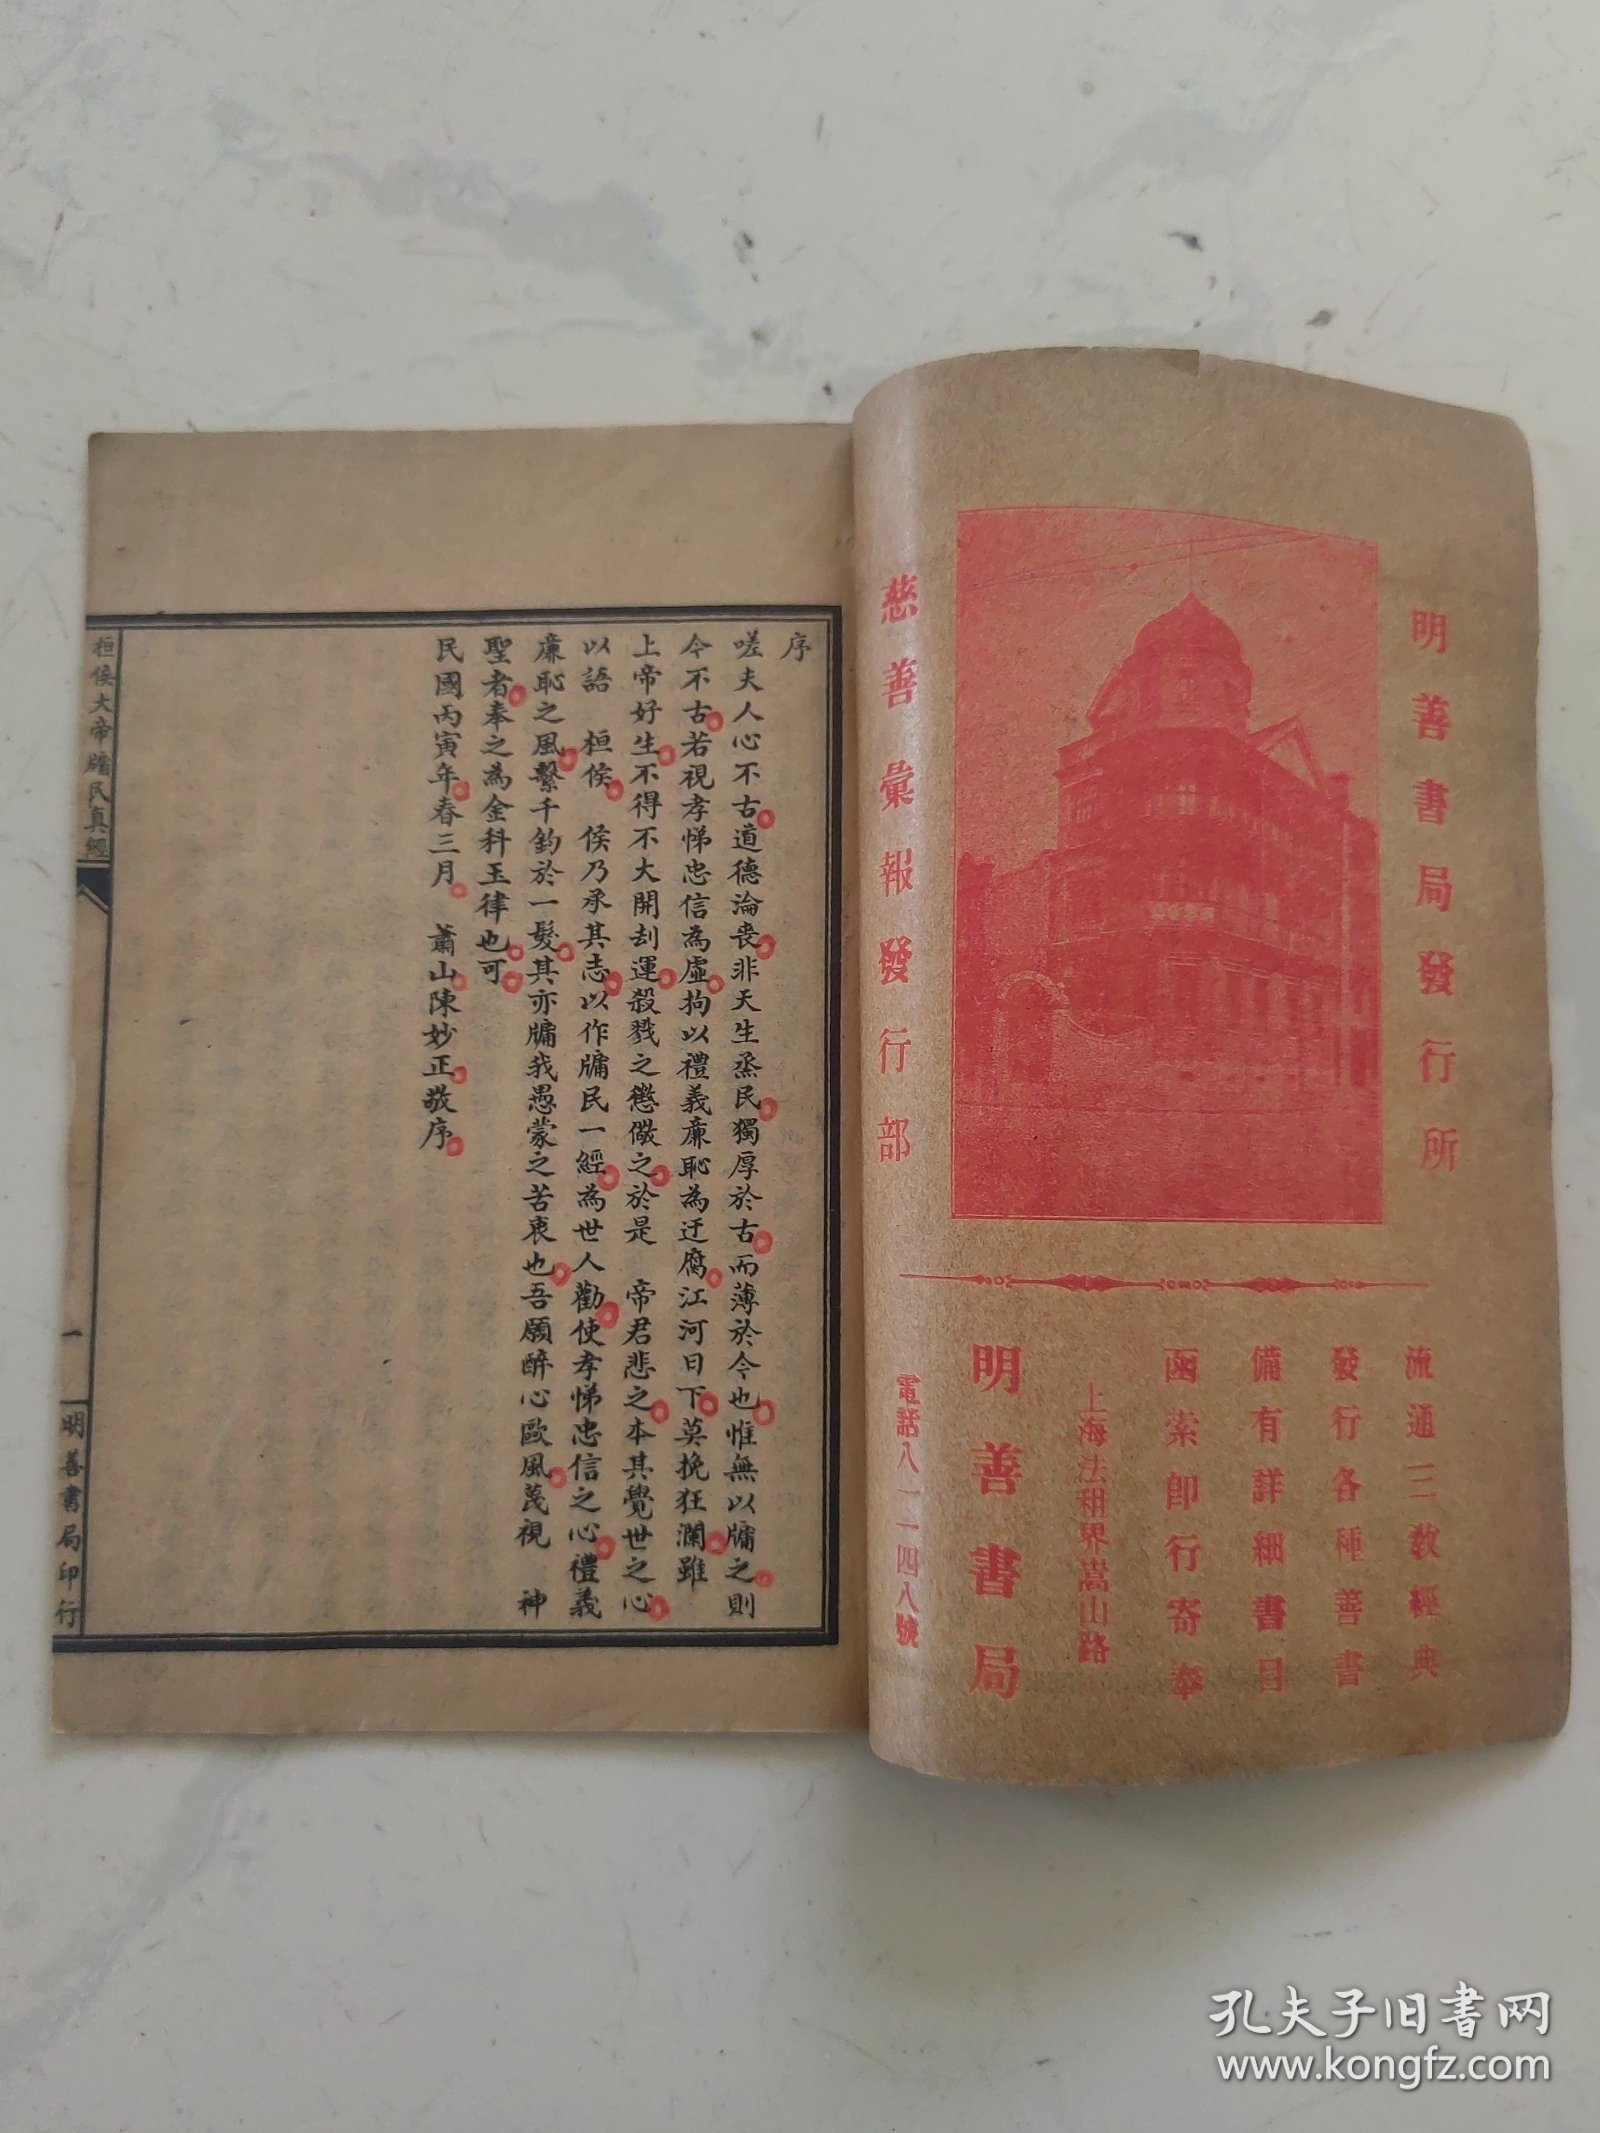 明善書局發行所
慈善彙報發行部
流通三教經典
發行各種善書
備有詳細書目
函索即行寄奉
上海法租界嵩山路
明善書局
電話八一一四八號
序
嗟夫人心不古道德淪喪非天生烝民獨厚於古而薄於今也惟無以牖之則
今不古若視孝悌忠信為虛拘以禮義廉恥為迂腐江河日下莫挽狂瀾雖
上帝好生不得不大開刦運殺戮之懲儆之於是 帝君悲之本其覺世之心
以語 桓侯 侯乃承其志以作牖民一經為世人勸使孝悌忠信之心禮義
廉恥之風繫千鈞於一髮其亦牖我愚蒙之苦衷也吾願醉心歐風蔑視 神
聖者奉之為金科玉律也可
民國丙寅年春三月 蕭山陳妙正敬序
桓侯大帝牖民真經
一
明善書局印行
孔夫子旧书网
www.kongfz.com